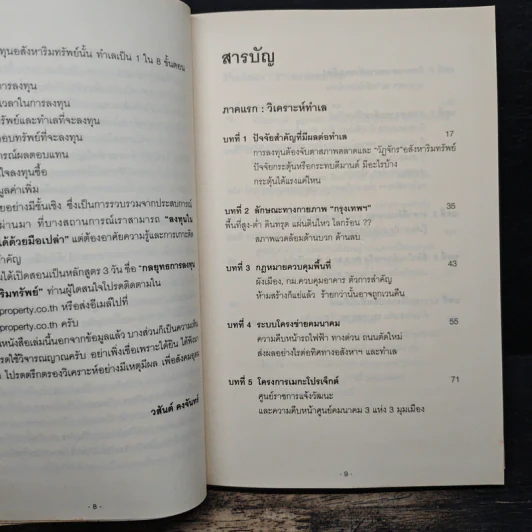 ทุนอสังหาริมทรัพย์นั้น ทำเลเป็น 1 ใน 8 ขั้นตอน
การลงทุน
เวลาในการลงทุน
รัพย์และทำเลที่จะลงทุน
อบทรัพย์ที่จะลงทุน
ารณ์ผลตอบแทน
ใจลงทุนซื้อ
มูลค่าเพิ่ม
ายอย่างมีชั้นเชิง ซึ่งเป็นการรวบรวมจากประสบการณ์
ผ่านมา ที่บางสถานการณ์เราสามารถ "ลงทุนใน
ได้ด้วยมือเปล่า" แต่ต้องอาศัยความรู้และการเกาะติด
สำคัญ
ได้เปิดสอนเป็นหลักสูตร 3 วัน ชื่อ "กลยุทธการลงทุน
ริมทรัพย์" ท่านผู้ใดสนใจโปรดติดตามใน
property.co.th หรือส่งอีเมลไปที่
property.co.th ครับ
หนังสือเล่มนี้นอกจากข้อมูลแล้ว บางส่วนก็เป็นความเห็น
รดใช้วิจารณญาณครับ อย่าเพิ่งเชื่อเพราะได้ยิน ได้ฟัง
โปรดตรึกตรองวิเคราะห์อย่างมีเหตุมีผล เพื่อสังคมอุดม
วสันต์ คงจันทร์
- 8 -
สารบัญ
ภาคแรก : วิเคราะห์ทำเล
บทที่ 1 ปัจจัยสำคัญที่มีผลต่อทำเล 17
การลงทุนต้องจับตาสภาพตลาดและ "วัฏจักร"อสังหาริมทรัพย์
ปัจจัยกระตุ้นหรือกระทบดีมานด์ มีอะไรบ้าง
กระตุ้นได้แรงแค่ไหน
บทที่ 2 ลักษณะทางกายภาพ "กรุงเทพฯ" 35
พื้นที่สูง-ต่ำ ดินทรุด แผ่นดินไหว โลกร้อน ??
สภาพแวดล้อมด้านบวก ด้านลบ
บทที่ 3 กฎหมายควบคุมพื้นที่ 43
ผังเมือง, กม.ควบคุมอาคาร ตัวการสำคัญ
ห้ามสร้างก็แย่แล้ว ร้ายกว่านั้นอาจถูกเวนคืน
บทที่ 4 ระบบโครงข่ายคมนาคม 55
ความคืบหน้ารถไฟฟ้า ทางด่วน ถนนตัดใหม่
ส่งผลอย่างไรต่อทิศทางอสังหาฯ และทำเล
บทที่ 5 โครงการเมกะโปรเจ็กต์ 71
ศูนย์ราชการแจ้งวัฒนะ
และความคืบหน้าศูนย์คมนาคม 3 แห่ง 3 มุมเมือง
- 9 -